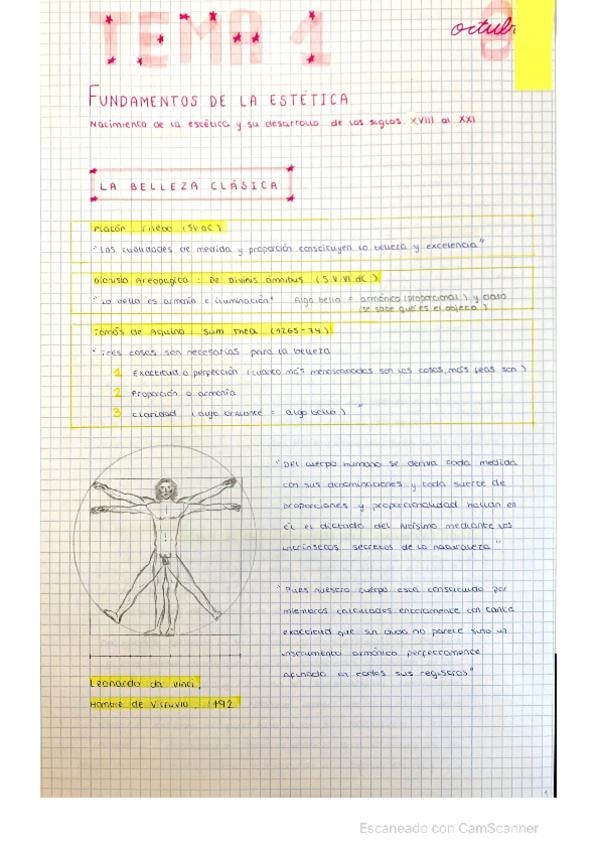 TEMA 1
octub
FUNDAMENTOS DE LA ESTÉTICA
Nacimiento de la estética y su desarrollo de los siglos XVIII al XXI
LA BELLEZA CLÁSICA
Platón: Filebo (SV aC)
"Las cualidades de medida y proporción constituyen la belleza y excelencia"
Dionisio Areopagita: De Divinis ómnibus (S V.VI dC)
"Lo bello es armonía e iluminación" Algo bello = armónico (proporcional) y claro
(se sabe qué es el objeto)
Tomás de Aquino: Sum Thea (1265-74)
"Tres cosas son necesarias para la belleza
1 Exactitud o perfección (cuanto más menoscabadas son las cosas, más feas son)
2 Proporción o armonía
3 Claridad (algo brillante = algo bello)"
"Del cuerpo humano se deriva toda medida
con sus denominaciones y toda suerte de
proporciones y proporcionalidad hallan en
él el dictado del Altísimo mediante los
intrínsecos secretos de la naturaleza"
"Pues nuestro cuerpo está constituido por
miembros calculados enteramente con tanta
exactitud que sin duda no parece sino un
instrumento armónico perfectamente
afinado en todos sus registros"
Leonardo da Vinci,
Hombre de Vitruvio, 1492
Escaneado con CamScanner